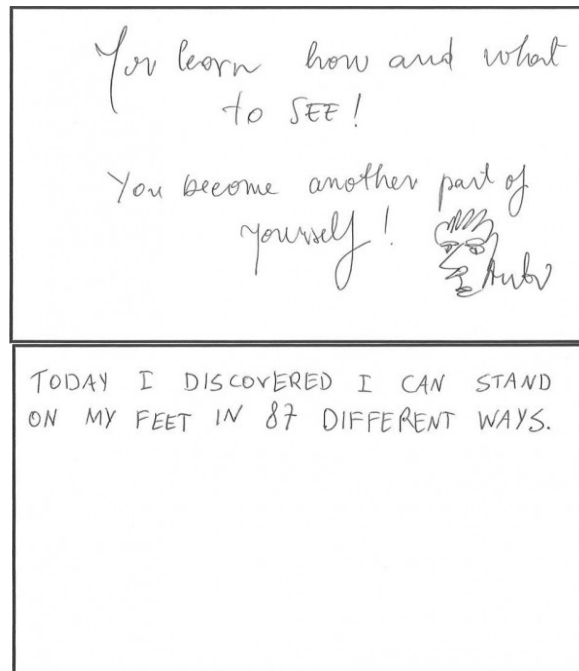 You learn how and what
to SEE!
You become another part of
yourself!
TODAY I DISCOVERED I CAN STAND
ON MY FEET IN 87 DIFFERENT WAYS.